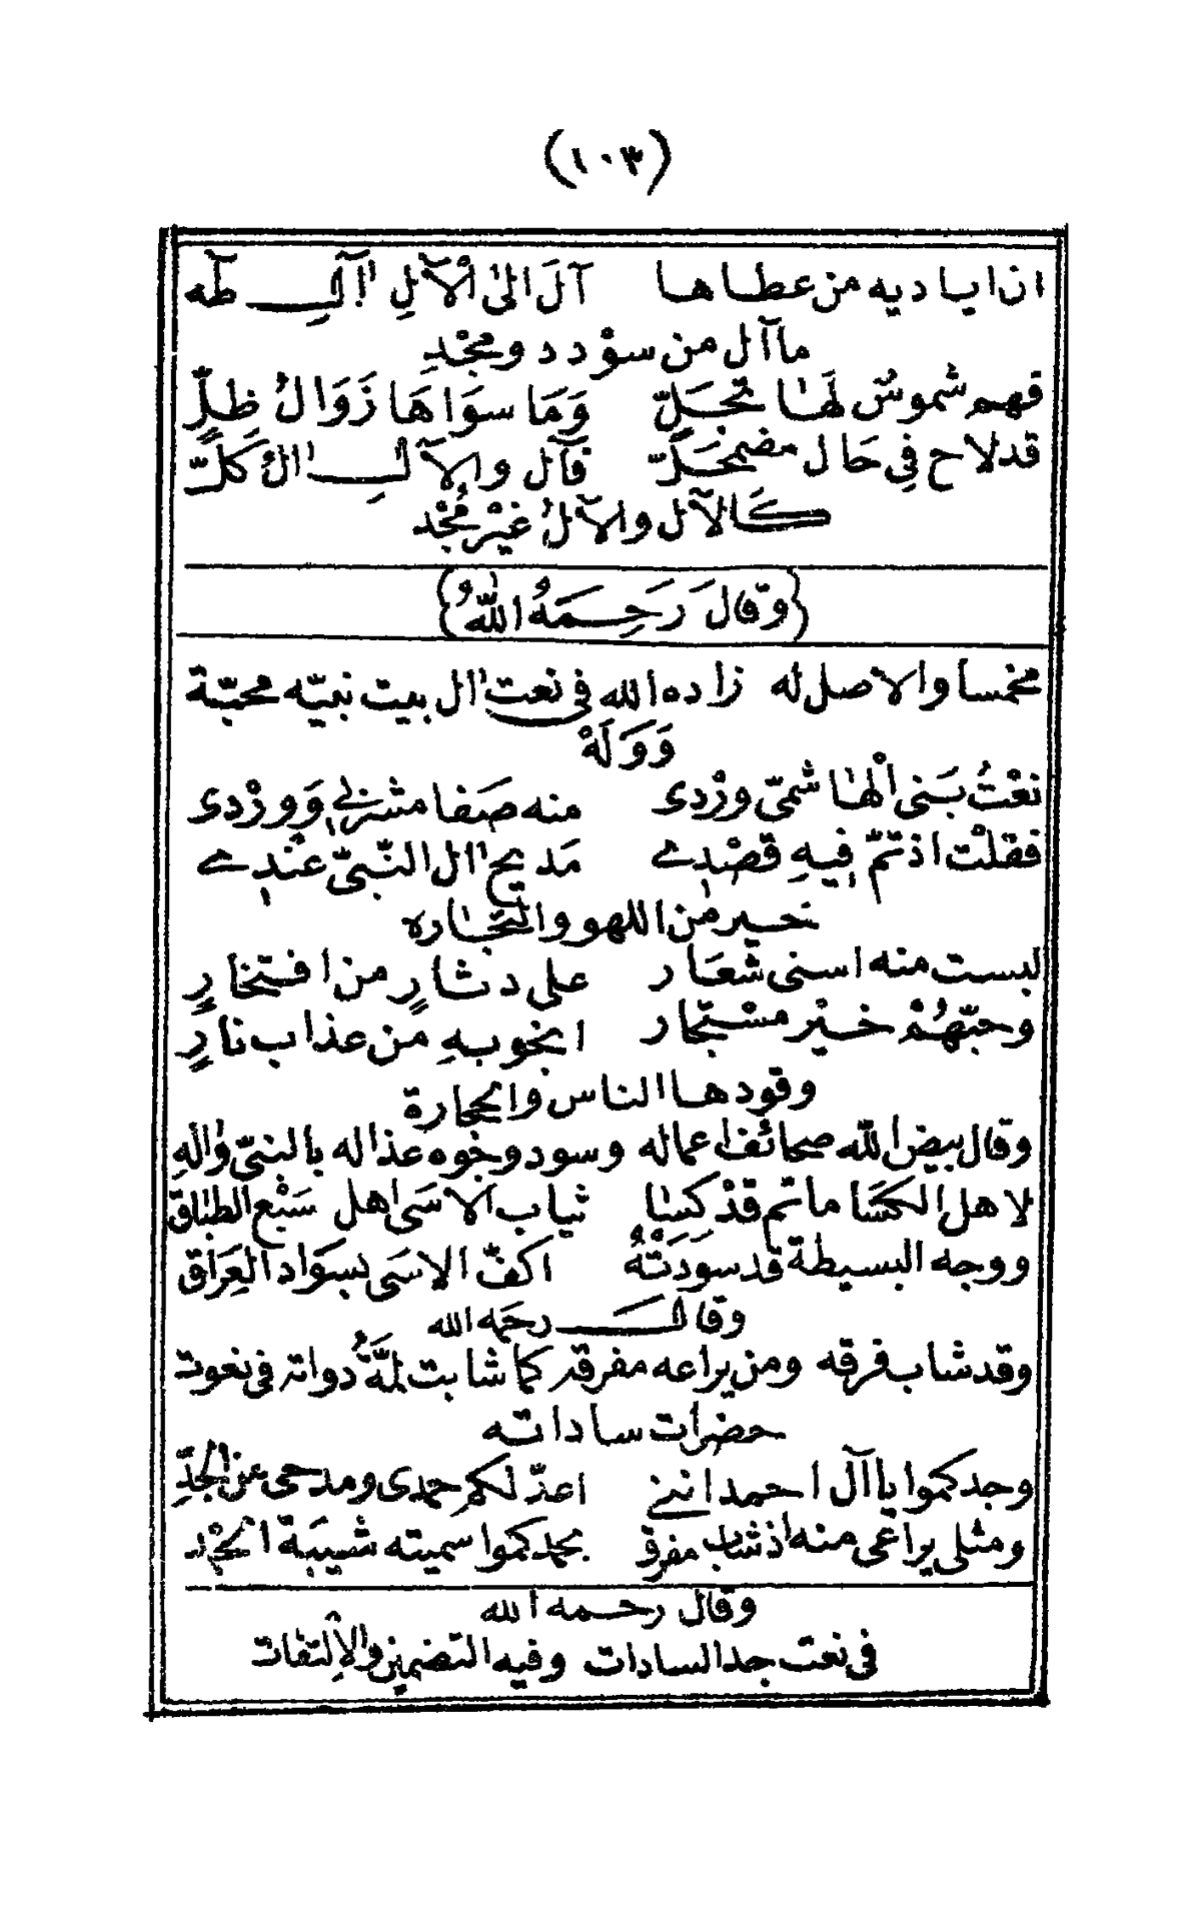 (١٠٣)
ان اياديه من عطاها آلَ الىٰ الْآلِ اٰل طٰه
ما آل من سوْدد ومجْدِ
فهم شموسٌ لَهٰا تجَلّ وَمَا سوَاهَا زَوَالُ ظِلٍّ
قد لاح فِي حَال مضمحَلّ فآل والآل اٰل كَلّ
كَالآل والآلُ غيْر مُجْد
{وقالَ رَحِمَهُ اللهُ}
مخمسا والاصل له زاده الله فى نعت اٰل بيت نبيّه محبّة
وَوَلَهْ
نعْتُ بَنى الْهٰاشمىّ ورْدى منه صَفا مشربي وَورْدى
فقلْت اذ تمّ فيهِ قصْدي مَديح اٰل النّبىّ عنْدي
خير من اللهو والتجٰاره
لبست منه اسنى شعَار على دثارٍ من افتخارٍ
وحبّهُمْ خيْر مسْتجار انجو بهِ من عذاب نارٍ
وقودها الناس والحجارة
وقال بيض الله صحائف اعماله وسود وجوه عذاله بالنبىّ واٰلهِ
لاهل الكسَا ماتم قدْ كسٰا ثياب الاسَى اهل سَبْع الطبٰاق
ووجه البسيطة قد سوَدَتْهُ اكفّ الاسَى بسوَاد العِرَاق
وقال رحمَه الله
وقد شاب فرقه ومن يراعه مفرقه كما شابت لمَّةُ دواته فى نعوت
حضرات ساداته
وجدكموا يا آل احمد اننى اعدّ لكم حمدى ومدحى من الجدِّ
ومثلى يراعى منه اذ شاب مفرق بحمدكموا سميته شيبَة الحمْد
وقال رحمه الله
فى نعت جد السادات وفيه التضمين والالتفات